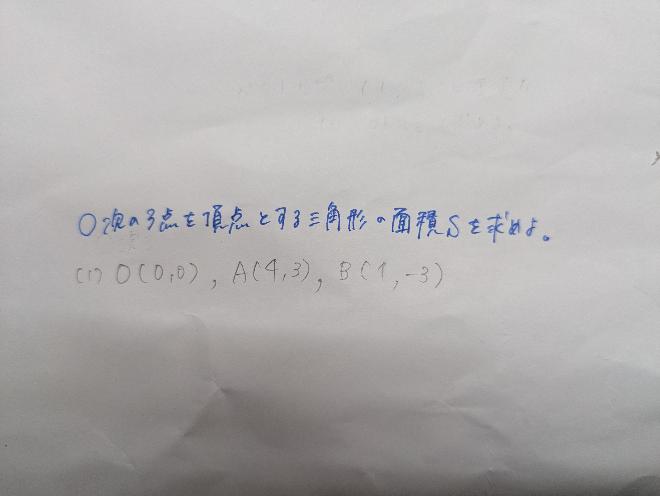 ○次の3点を頂点とする三角形の面積Sを求めよ。
(1) O(0,0), A(4,3), B(1,-3)